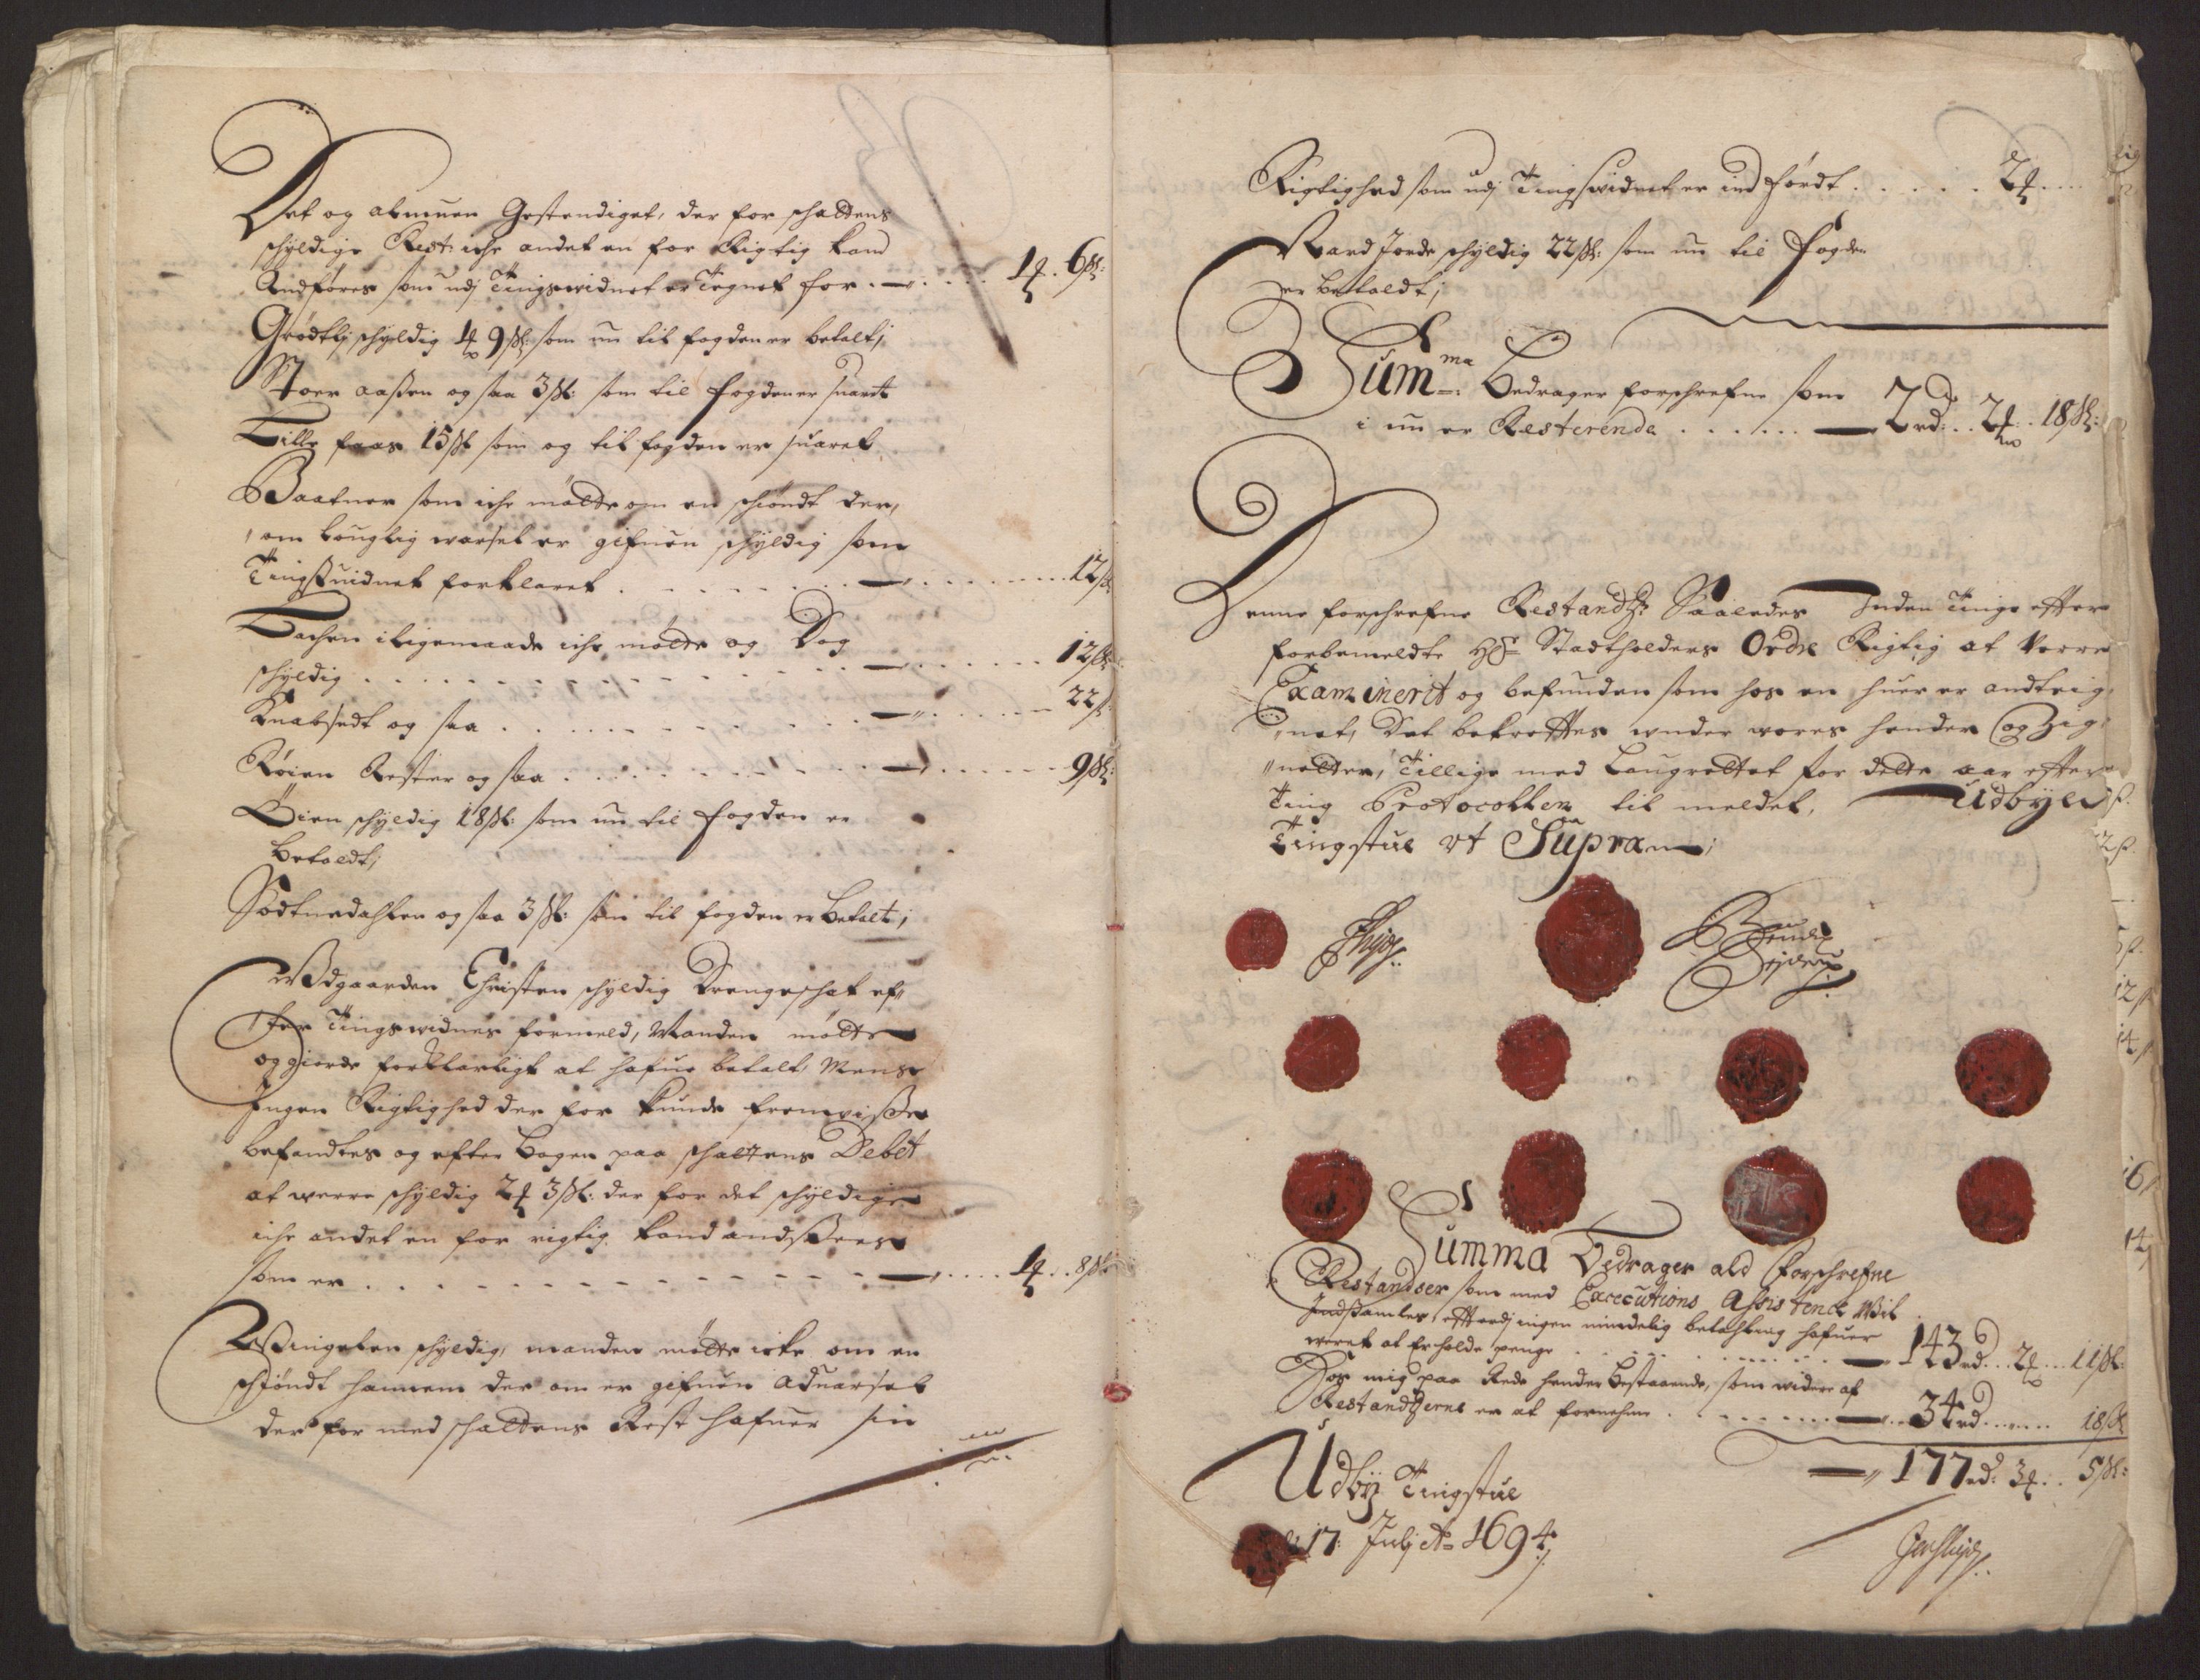 Det og almuen Gestendiget, der for schattens
schyldige Rest iche andet en for Rigtig kand
Andføres som udj Tingswidnet er Tegnet for . . . . 1 . 6 sk:
Grødtby schyldig 1 9 sk: som nu til fogden er betalt;
Stoer aaßen og saa 3 sk: som til fogden er suaret
Tille faas 15 sk som og til fogden er suaret
Baatner som iche mødte om en schiøndt der,
om louglig warsel er gifuen schyldig som
Tingßuidnet forklaret . . . . . 12 sk
Tachen i ligemaade iche mødte og Dog
schyldig . . . . . 12 sk:
Knabsedt og saa . . . . . 22 s
Røien Rester og saa . . . . . 9 sk:
Øien schyldig 18 sk: som nu til fogden er
Betaldt;
Sødtnedahlen og saa 3 sk: som til fogden er Betalt;
Christen schyldig Drengeschat ef,,
ter Tingswidnes formeld, Manden mødte
og giorde forklarligt at hafue betalt, Mens
Ingen Rigtighed der for kunde fremviße
befandtes og efter Bogen paa schattens Debet
at werre schyldig 2 3 sk: der for det schyldige
iche andet en for rigtig kand andßees
som er . . . . . 1 . . 8 sk
schyldig, manden møtte icke om en
schiøndt hannem der om er gifuen aduarsel
der for med schattens Rest hafuer sin
Rigtighed som udj Tingswidnet er ind ført . . . . . 2
schyldig 22 sk: som nu til fogden
er betaldt;
Sum ma: Bedrager forschrefne som
i nu er Resterende . . . . . 2 rd: . . 2 . . 18 sk:
Denne forschrefne Restandtz Saaledes Inden Tinge efter
forbemeldte Hr Stadtholders Ordre Rigtig at Verre
Examinerit og befunden som hos en huer er andteig,
net, Det bekreftes under wores hender og Zig,
netter, Tillige med Laugrettet for dette aar efter
Ting Protocollen til meldet, Udbye
Tingstue ut Supra
Summa Bedrager ald forschrefne
Restandser som med Executions Assistence Wil
Indßamles, efterdj ingen mindelig betahling hafuer
weret at Erholde penge . . . . . 143 rd . . 2 . . 11 sk:
Hos mig paa Rede hender Bestaaende, som widere af
Restandtzerne er at fornehme . . . . . 34 rd . . . . 18 sk
177 rd: 3 . . 5 sk:
Udby Tingstue
17: Julj Ao 1694